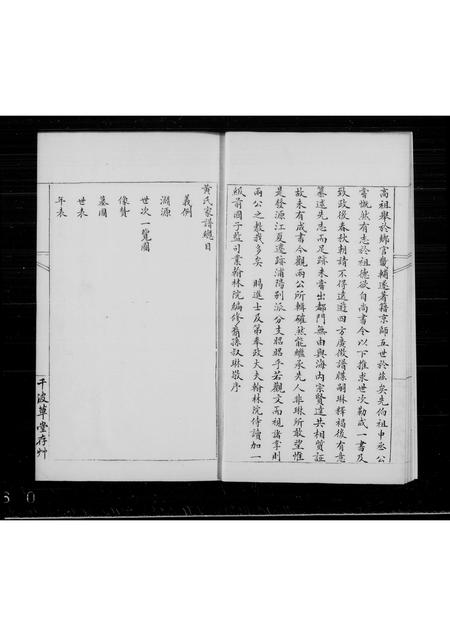 高祖舉於鄉官畿輔遂著籍京師五世於茲矣先伯祖中丞公
嘗慨然有志於祖德欲自尚書令以下推求世次勒成一書及
致政後春秋朝請不得遠遊四方廣徵譜牒嗣琳釋褐後有意
纂述先志而足跡未嘗出都門無由與海內宗賢達共相質証
故未有成書今觀兩公所輯確然能繼承先人非琳所敢望惟
是發源江夏遷跡浦陽別派分支昭昭乎若觀文而視諸掌則
兩公之教我多矣 賜進士及第奉政大夫翰林院侍讀加一
級前國子監司業翰林院編修裔孫叔琳敬序
黃氏家譜總目
義例
溯源
世次一覽圖
像贊
墓圖
世表
年表
千波草堂存艸
6 0